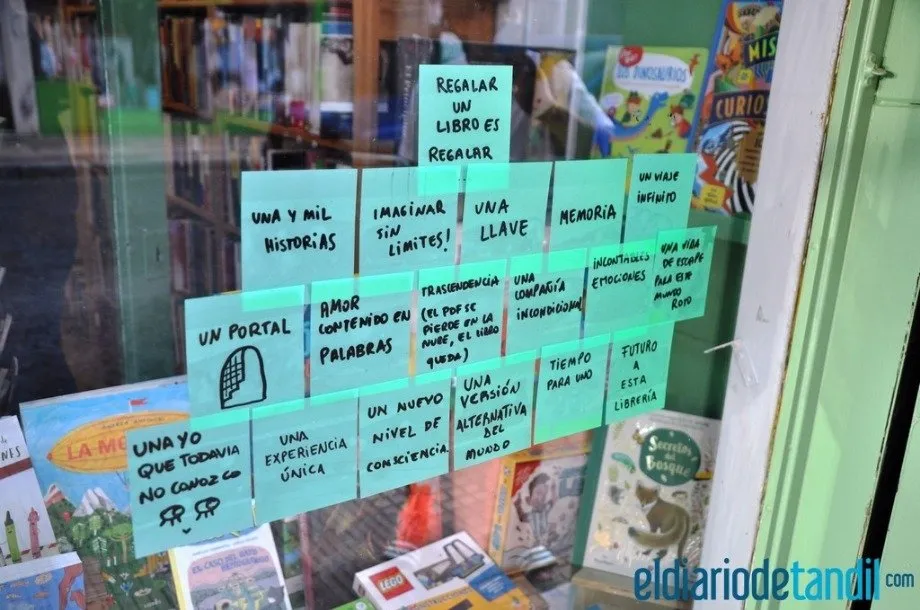 REGALAR
UN
LIBRO ES
REGALAR
UNA Y MIL
HISTORIAS
IMAGINAR
SIN
LIMITES!
UNA
LLAVE
MEMORIA
UN VIAJE
INFINITO
UN PORTAL
AMOR
CONTENIDO EN
PALABRAS
TRASCENDENCIA
(EL PDF SE
PIERDE EN LA
NUBE, EL LIBRO
QUEDA)
UNA
COMPAÑIA
INCONDICIONAL
INCONTABLES
EMOCIONES
UNA
DE ESCAPE
PARA ESTE
MUNDO
ROTO
UNA YO
QUE TODAVIA
NO CONOZCO
UNA
EXPERIENCIA
ÚNICA
UN NUEVO
NIVEL DE
CONSCIENCIA
UNA
VERSIÓN
ALTERNATIVA
DEL
MUNDO
TIEMPO
PARA UNO
FUTURO
A
ESTA
LIBRERÍA
LOS DINOSAURIOS
MIS
CURIO
LA
Secretos
del
Bosque
LEGO
eldiariodetandil.com